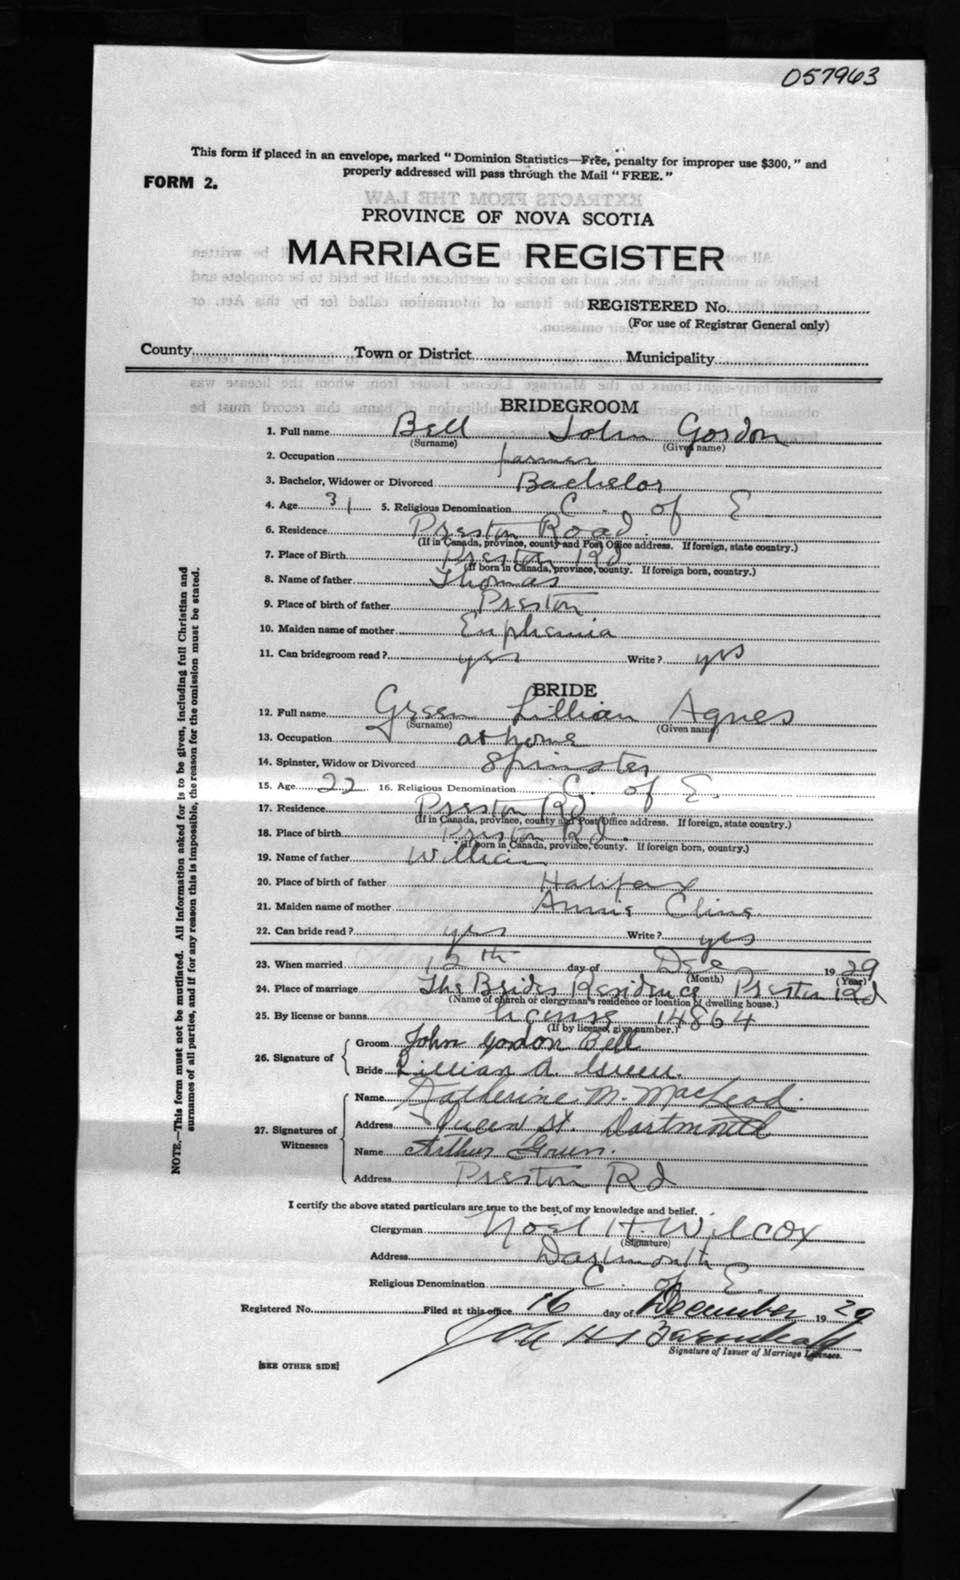 057963
This form if placed in an envelope, marked "Dominion Statistics—Free, penalty for improper use $300," and
properly addressed will pass through the Mail "FREE."
FORM 2.
EXTRACTS FROM THE LAW
PROVINCE OF NOVA SCOTIA
MARRIAGE REGISTER
REGISTERED No.
(For use of Registrar General only)
County Town or District Municipality
BRIDEGROOM
1. Full name Bell John Gordon
(Surname) (Given name)
2. Occupation farmer
3. Bachelor, Widower or Divorced Bachelor
4. Age 31 5. Religious Denomination C. of E
6. Residence Preston Road.
(If in Canada, province, county and Post Office address. If foreign, state country.)
7. Place of Birth Preston Rd
(If born in Canada, province, county. If foreign born, country.)
8. Name of father Thomas
9. Place of birth of father Preston
10. Maiden name of mother Euphemia
11. Can bridegroom read? yes Write? yes
BRIDE
12. Full name Green Lillian Agnes
(Surname) (Given name)
13. Occupation at home
14. Spinster, Widow or Divorced Spinster
15. Age 22 16. Religious Denomination C. of E.
17. Residence Preston Rd
(If in Canada, province, county and Post Office address. If foreign, state country.)
18. Place of birth Preston Rd.
(If born in Canada, province, county. If foreign born, country.)
19. Name of father William
20. Place of birth of father Halifax
21. Maiden name of mother Annie Cline
22. Can bride read? yes Write? yes
23. When married 12th day of Dec 1929
(Month) (Year)
24. Place of marriage The Brides Residence Preston Rd
(Name of church or clergyman's residence or location of dwelling house.)
25. By license or banns license 14864
(If by license, give number.)
26. Signature of Groom John Gordon Bell
Bride Lillian A. Green.
27. Signatures of Witnesses
Name Katherine M. MacLeod.
Address Queen St. Dartmouth
Name Arthur Green.
Address Preston Rd
I certify the above stated particulars are true to the best of my knowledge and belief.
Clergyman Noel H. Wilcox
(Signature)
Address Dartmouth
Religious Denomination C. of E.
Registered No. Filed at this office 16 day of December 1929
Signature of Issuer of Marriage Licenses.
[SEE OTHER SIDE]
NOTE.—This form must not be mutilated. All information asked for is to be given, including full Christian and
surnames of all parties, and if for any reason this is impossible, the reason for the omission must be stated.